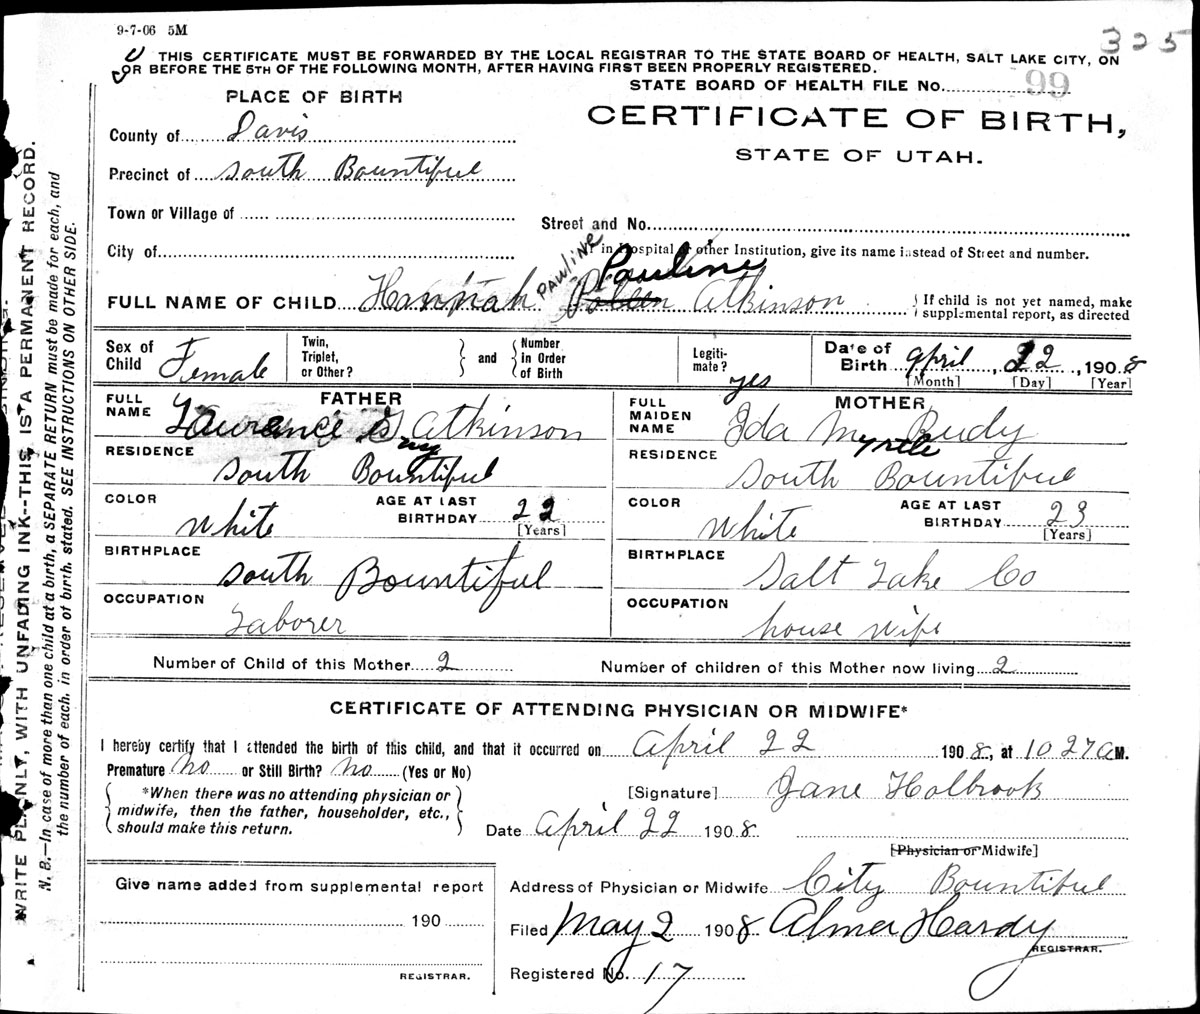 9-7-06 5M
325
THIS CERTIFICATE MUST BE FORWARDED BY THE LOCAL REGISTRAR TO THE STATE BOARD OF HEALTH, SALT LAKE CITY, ON
OR BEFORE THE 5TH OF THE FOLLOWING MONTH, AFTER HAVING FIRST BEEN PROPERLY REGISTERED.
STATE BOARD OF HEALTH FILE No. 99
PLACE OF BIRTH
CERTIFICATE OF BIRTH,
STATE OF UTAH.
County of Davis
Precinct of South Bountiful
Town or Village of
Street and No.
City of
If in Hospital or other Institution, give its name instead of Street and number.
PAULINE Pauline
FULL NAME OF CHILD Hannah Atkinson
If child is not yet named, make
supplemental report, as directed
Sex of Child Female
Twin, Triplet, or Other?
and
Number in Order of Birth
Legiti-mate? yes
Date of Birth April 22, 1908
[Month] [Day] [Year]
FATHER
FULL NAME Lawrence Atkinson
RESIDENCE South Bountiful
COLOR White
AGE AT LAST BIRTHDAY 22
[Years]
BIRTHPLACE South Bountiful
OCCUPATION Laborer
MOTHER
FULL MAIDEN NAME Ida Myrtle Rudy
RESIDENCE South Bountiful
COLOR White
AGE AT LAST BIRTHDAY 23
[Years]
BIRTHPLACE Salt Lake Co
OCCUPATION house wife
Number of Child of this Mother 2
Number of children of this Mother now living 2
CERTIFICATE OF ATTENDING PHYSICIAN OR MIDWIFE*
I hereby certify that I attended the birth of this child, and that it occurred on April 22 1908, at 10 27 a M.
Premature no or Still Birth? no (Yes or No)
*When there was no attending physician or
midwife, then the father, householder, etc.,
should make this return.
[Signature] Jane Holbrook
Date April 22 1908.
[Physician or Midwife]
Give name added from supplemental report
190
REGISTRAR.
Address of Physician or Midwife City Bountiful
Filed May 2 1908. Alma Hardy
REGISTRAR.
Registered No. 17
WRITE PLAINLY, WITH UNFADING INK--THIS IS A PERMANENT RECORD.
N. B.—In case of more than one child at a birth, a SEPARATE RETURN must be made for each, and
the number of each, in order of birth, stated. SEE INSTRUCTIONS ON OTHER SIDE.